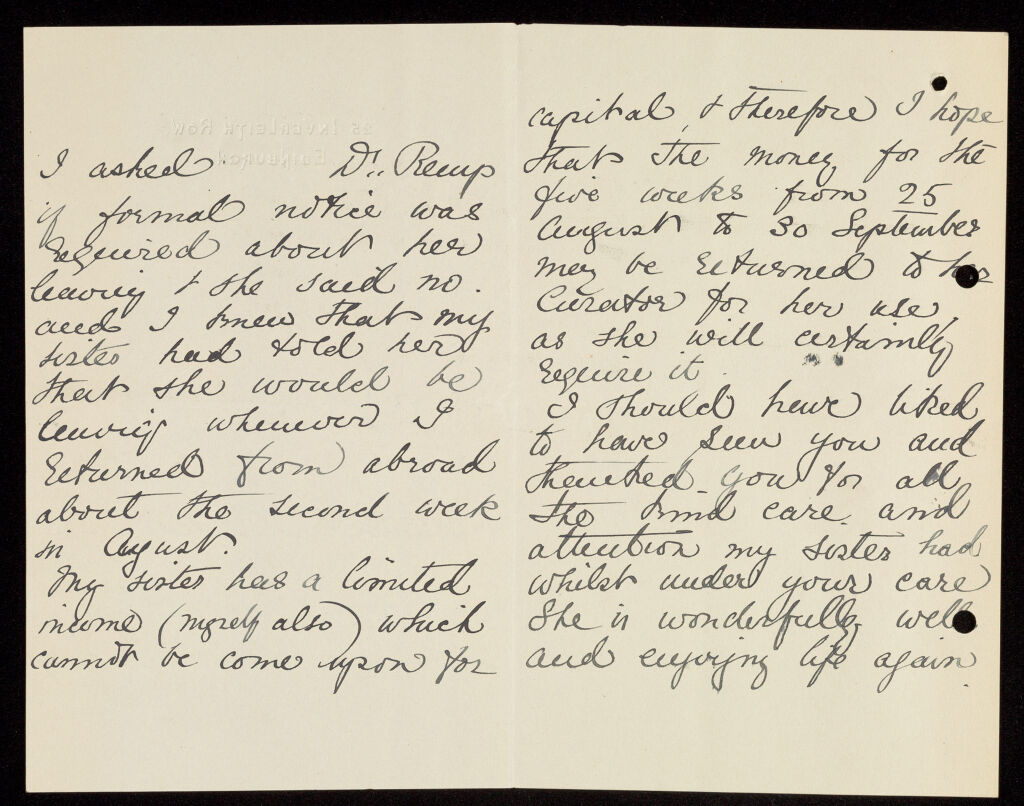 25 Inverleith Row
Edinburgh
I asked Dr. Remp
if formal notice was
required about her
leaving & she said no.
and I knew that my
sister had told her
that she would be
leaving whenever I
returned from abroad
about the second week
in August.
My sister has a limited
income (myself also) which
cannot be come upon for
capital, & therefore I hope
that the money for the
five weeks from 25
August to 30 September
may be returned to her
Curator for her use,
as she will certainly
require it.
I should have liked
to have seen you and
thanked you for all
the kind care and
attention my sister had
whilst under your care
She is wonderfully well
and enjoying life again.